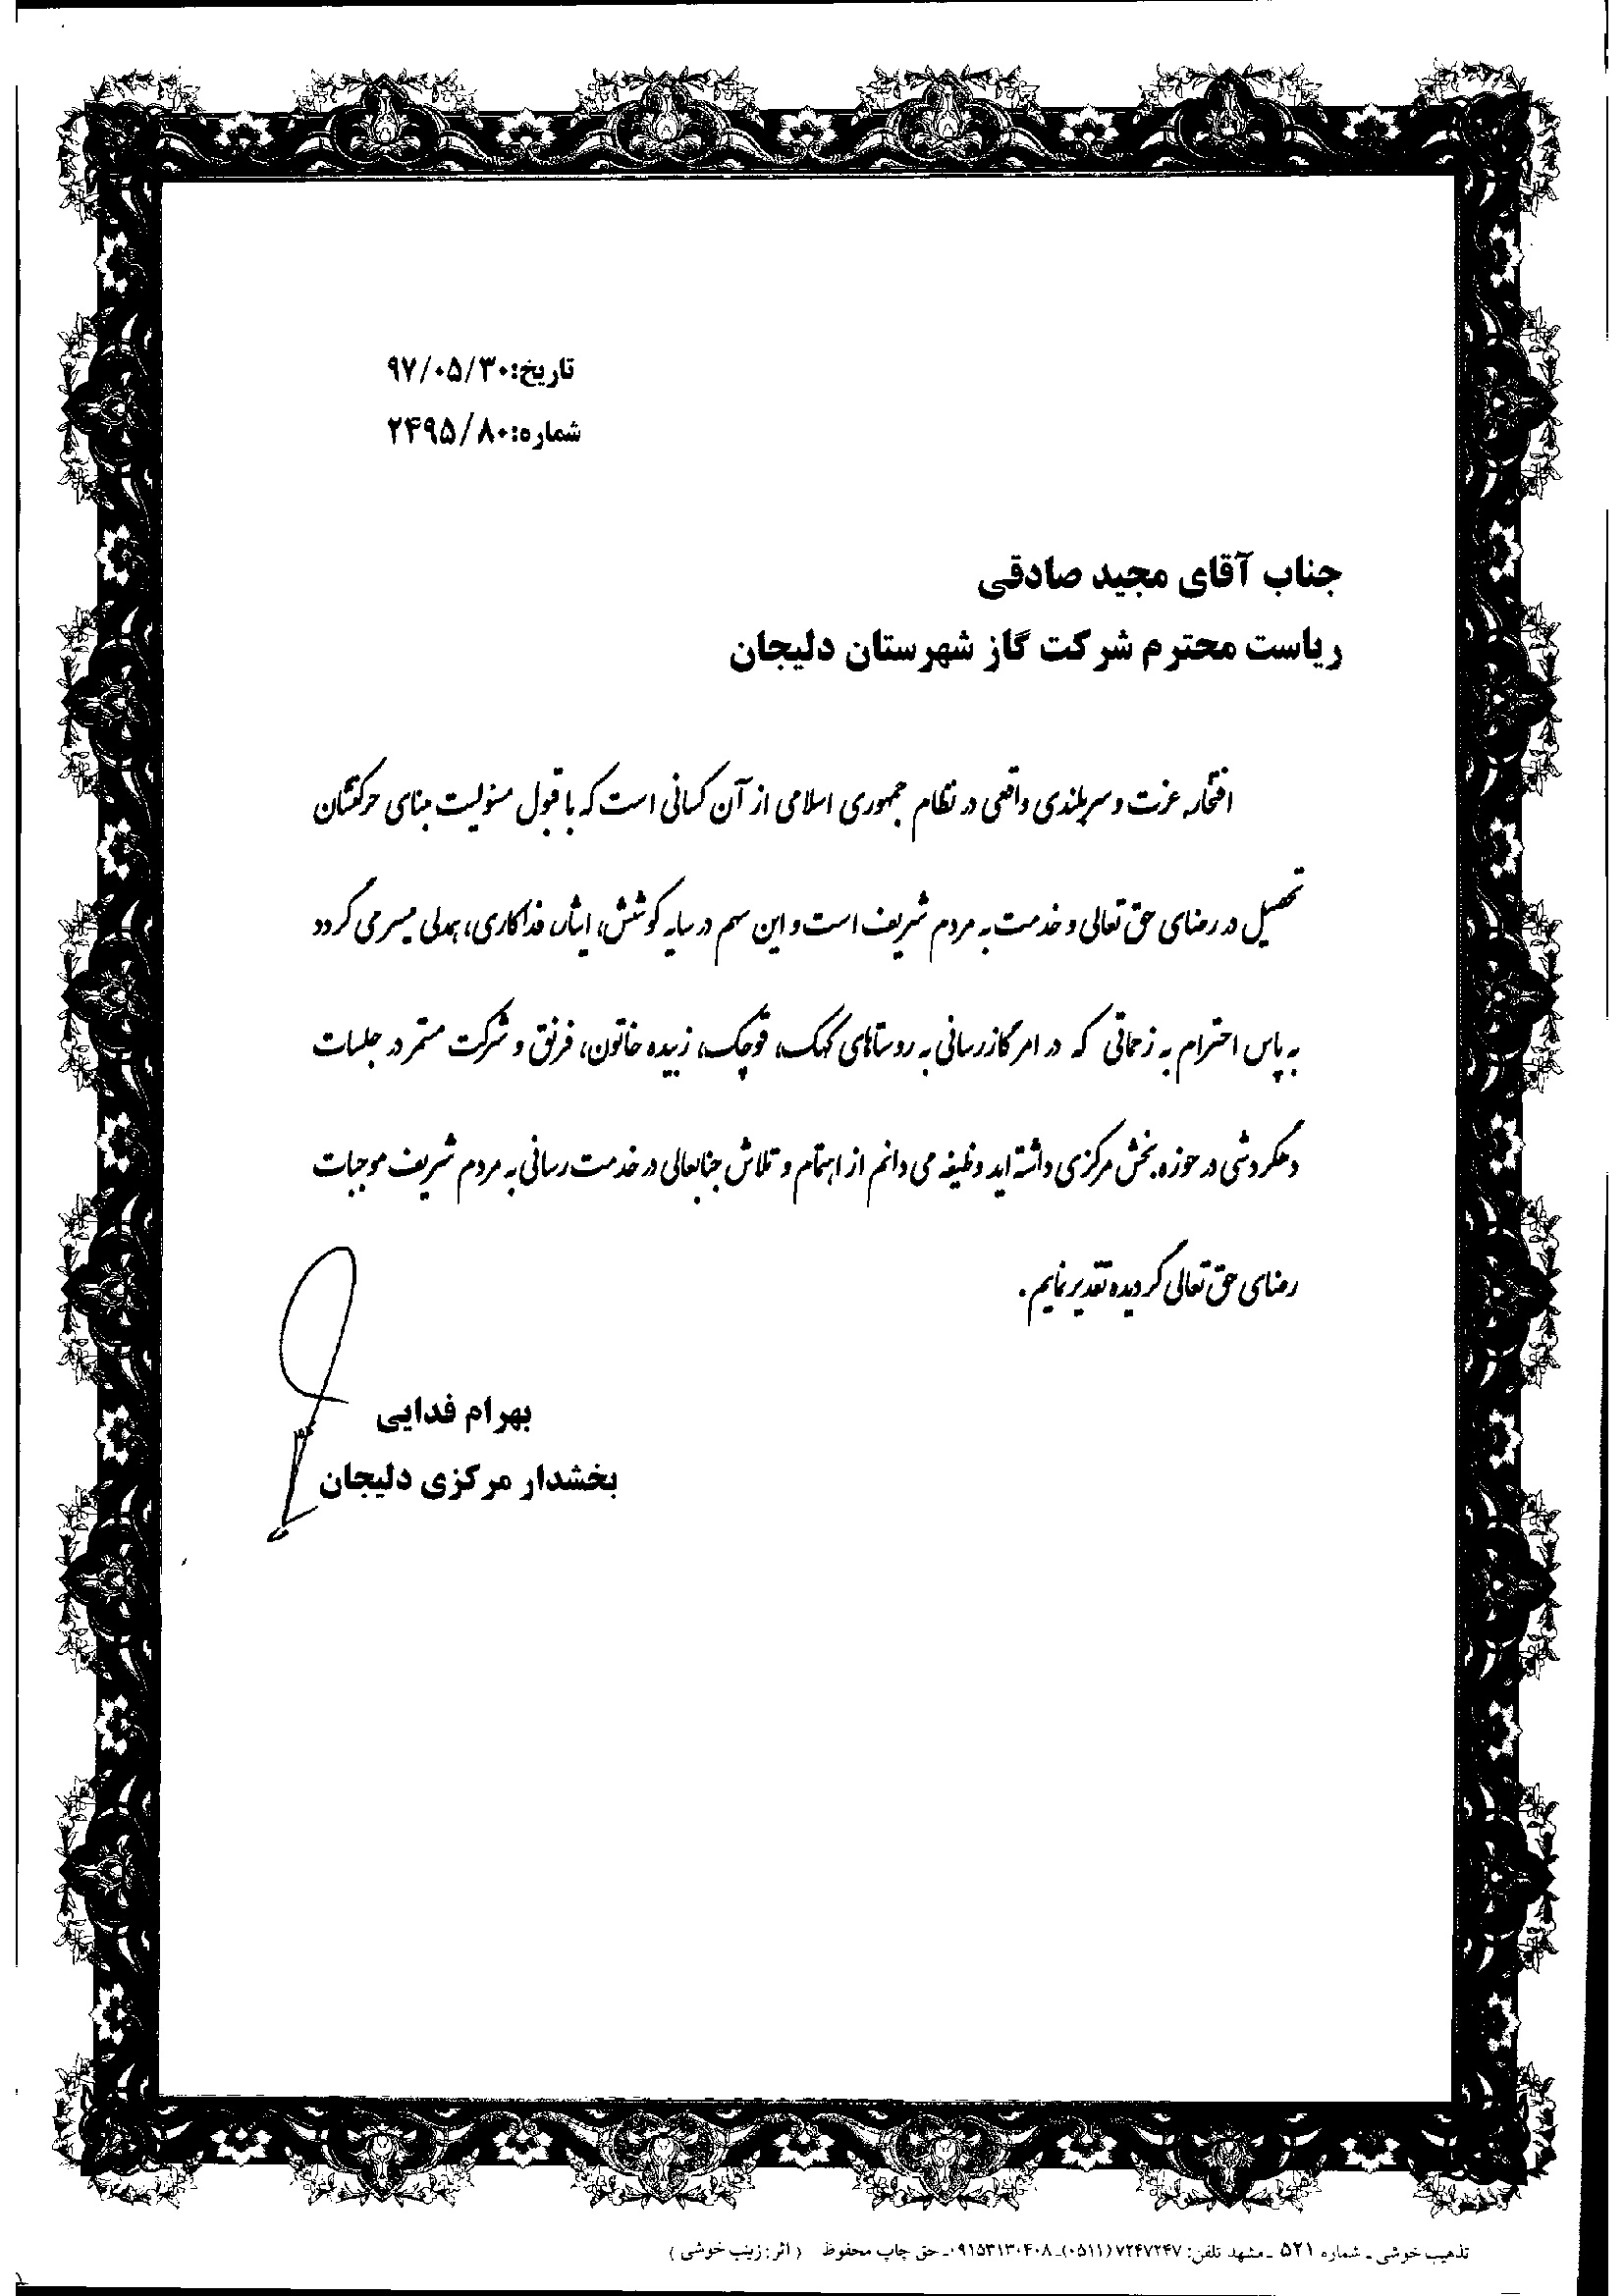 تاریخ:۹۷/۰۵/۳۰
شماره:۲۴۹۵/۸۰
جناب آقای مجید صادقی
ریاست محترم شرکت گاز شهرستان دلیجان
افتخار، عزت و سربلندی واقعی در نظام جمهوری اسلامی از آن کسانی است که با قبول مسئولیت مبنای حرکتشان
تحصیل در رضای حق تعالی و خدمت به مردم شریف است و این مهم در سایه کوشش، ایثار، فداکاری، همدلی میسر می گردد
به پاس احترام به زحماتی که در امر گازرسانی به روستاهای کهک، قوچک، زبیده خاتون، فرنق و شرکت مستمر در جلسات
دهگردشی در حوزه بخش مرکزی داشته اید وظیفه می دانم از اهتمام و تلاش جنابعالی در خدمت رسانی به مردم شریف موجبات
رضای حق تعالی گردیده تقدیر نمایم.
بهرام فدایی
بخشدار مرکزی دلیجان
تذهیب خوشی ـ شماره ۵۲۱ ـ مشهد تلفن: ۷۲۴۷۲۴۷ (۰۵۱۱)ـ ۰۹۱۵۳۱۳۰۴۰۸ـ حق چاپ محفوظ ( اثر: زینب خوشی )